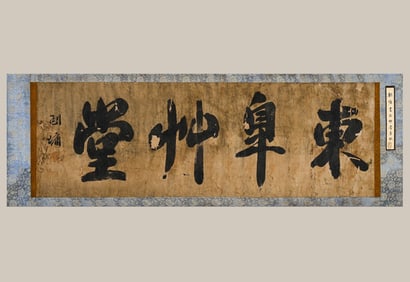 東皋艸堂
劉墉